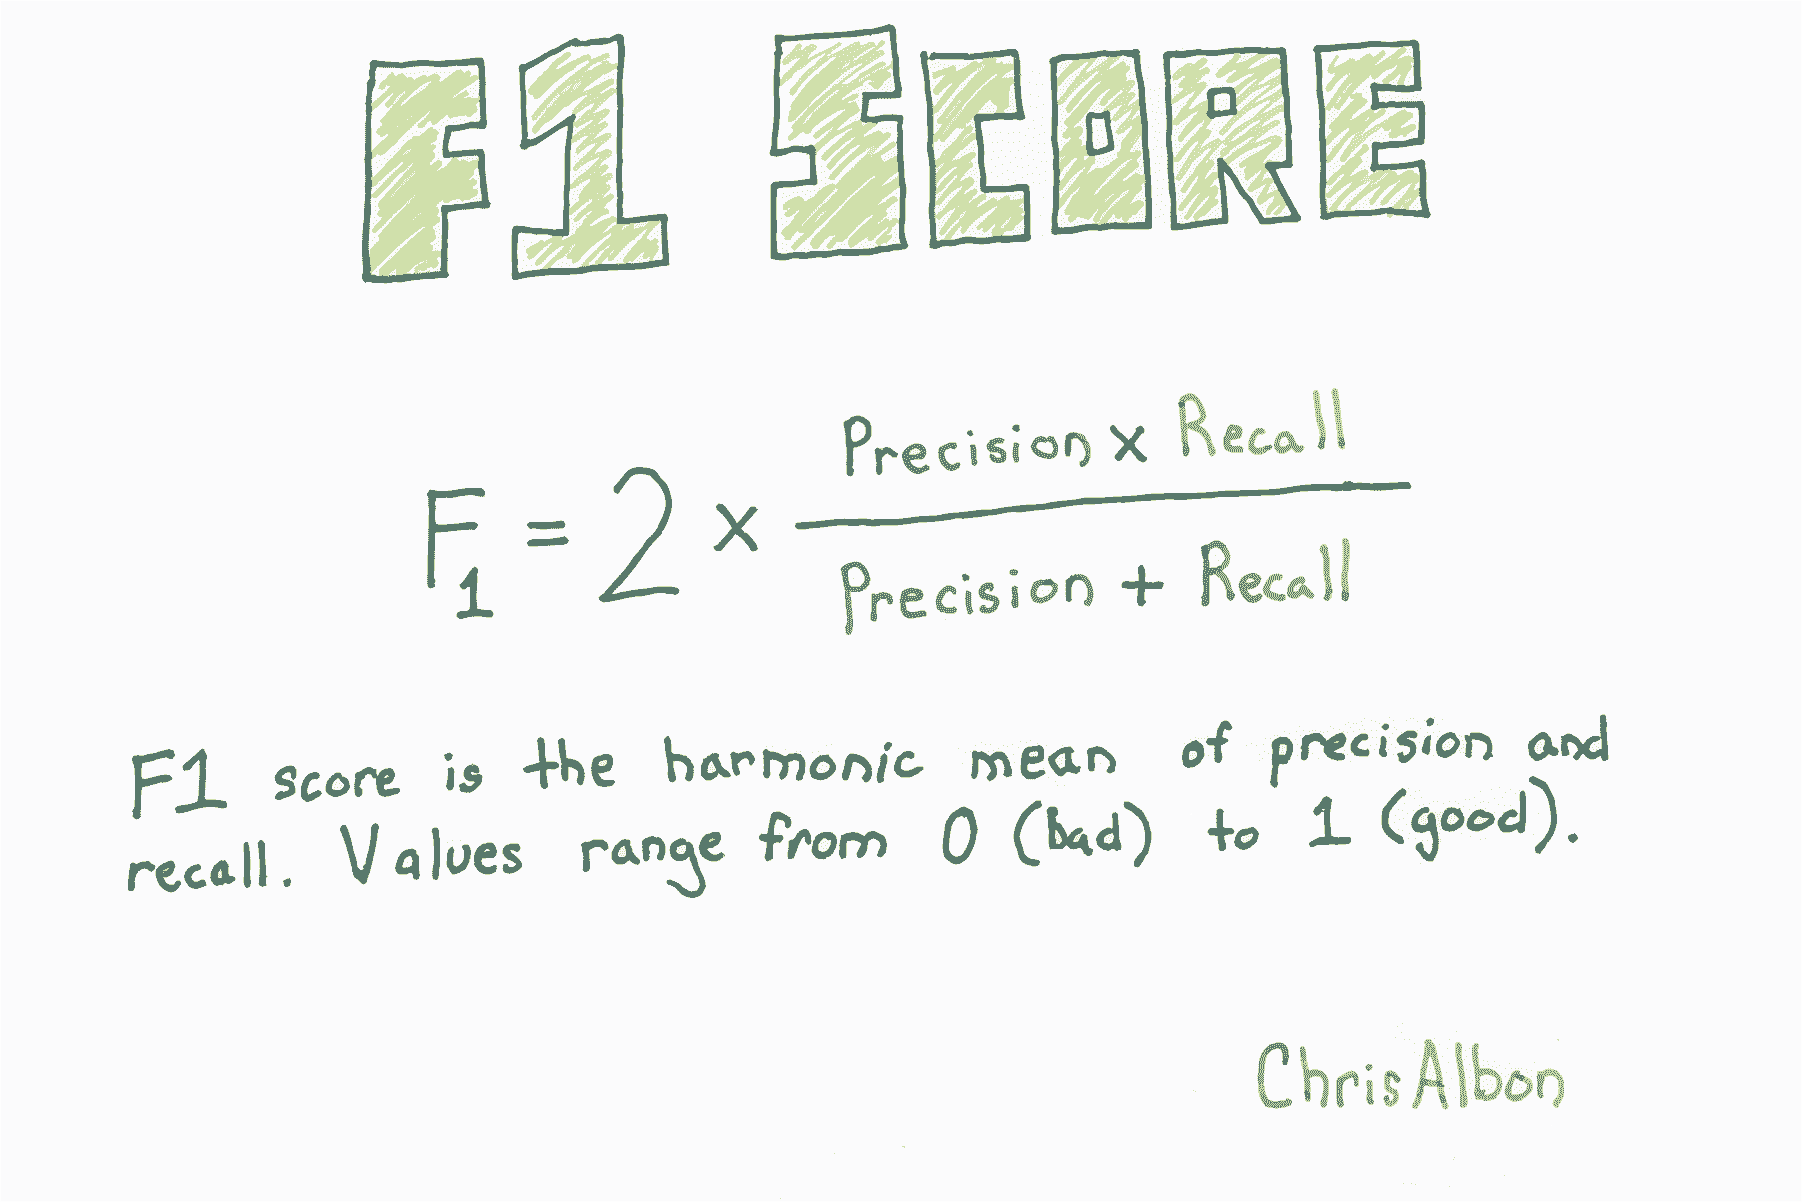 F1 SCORE
F1 = 2 x Precision x Recall / Precision + Recall
F1 score is the harmonic mean of precision and
recall. Values range from 0 (bad) to 1 (good).
ChrisAlbon